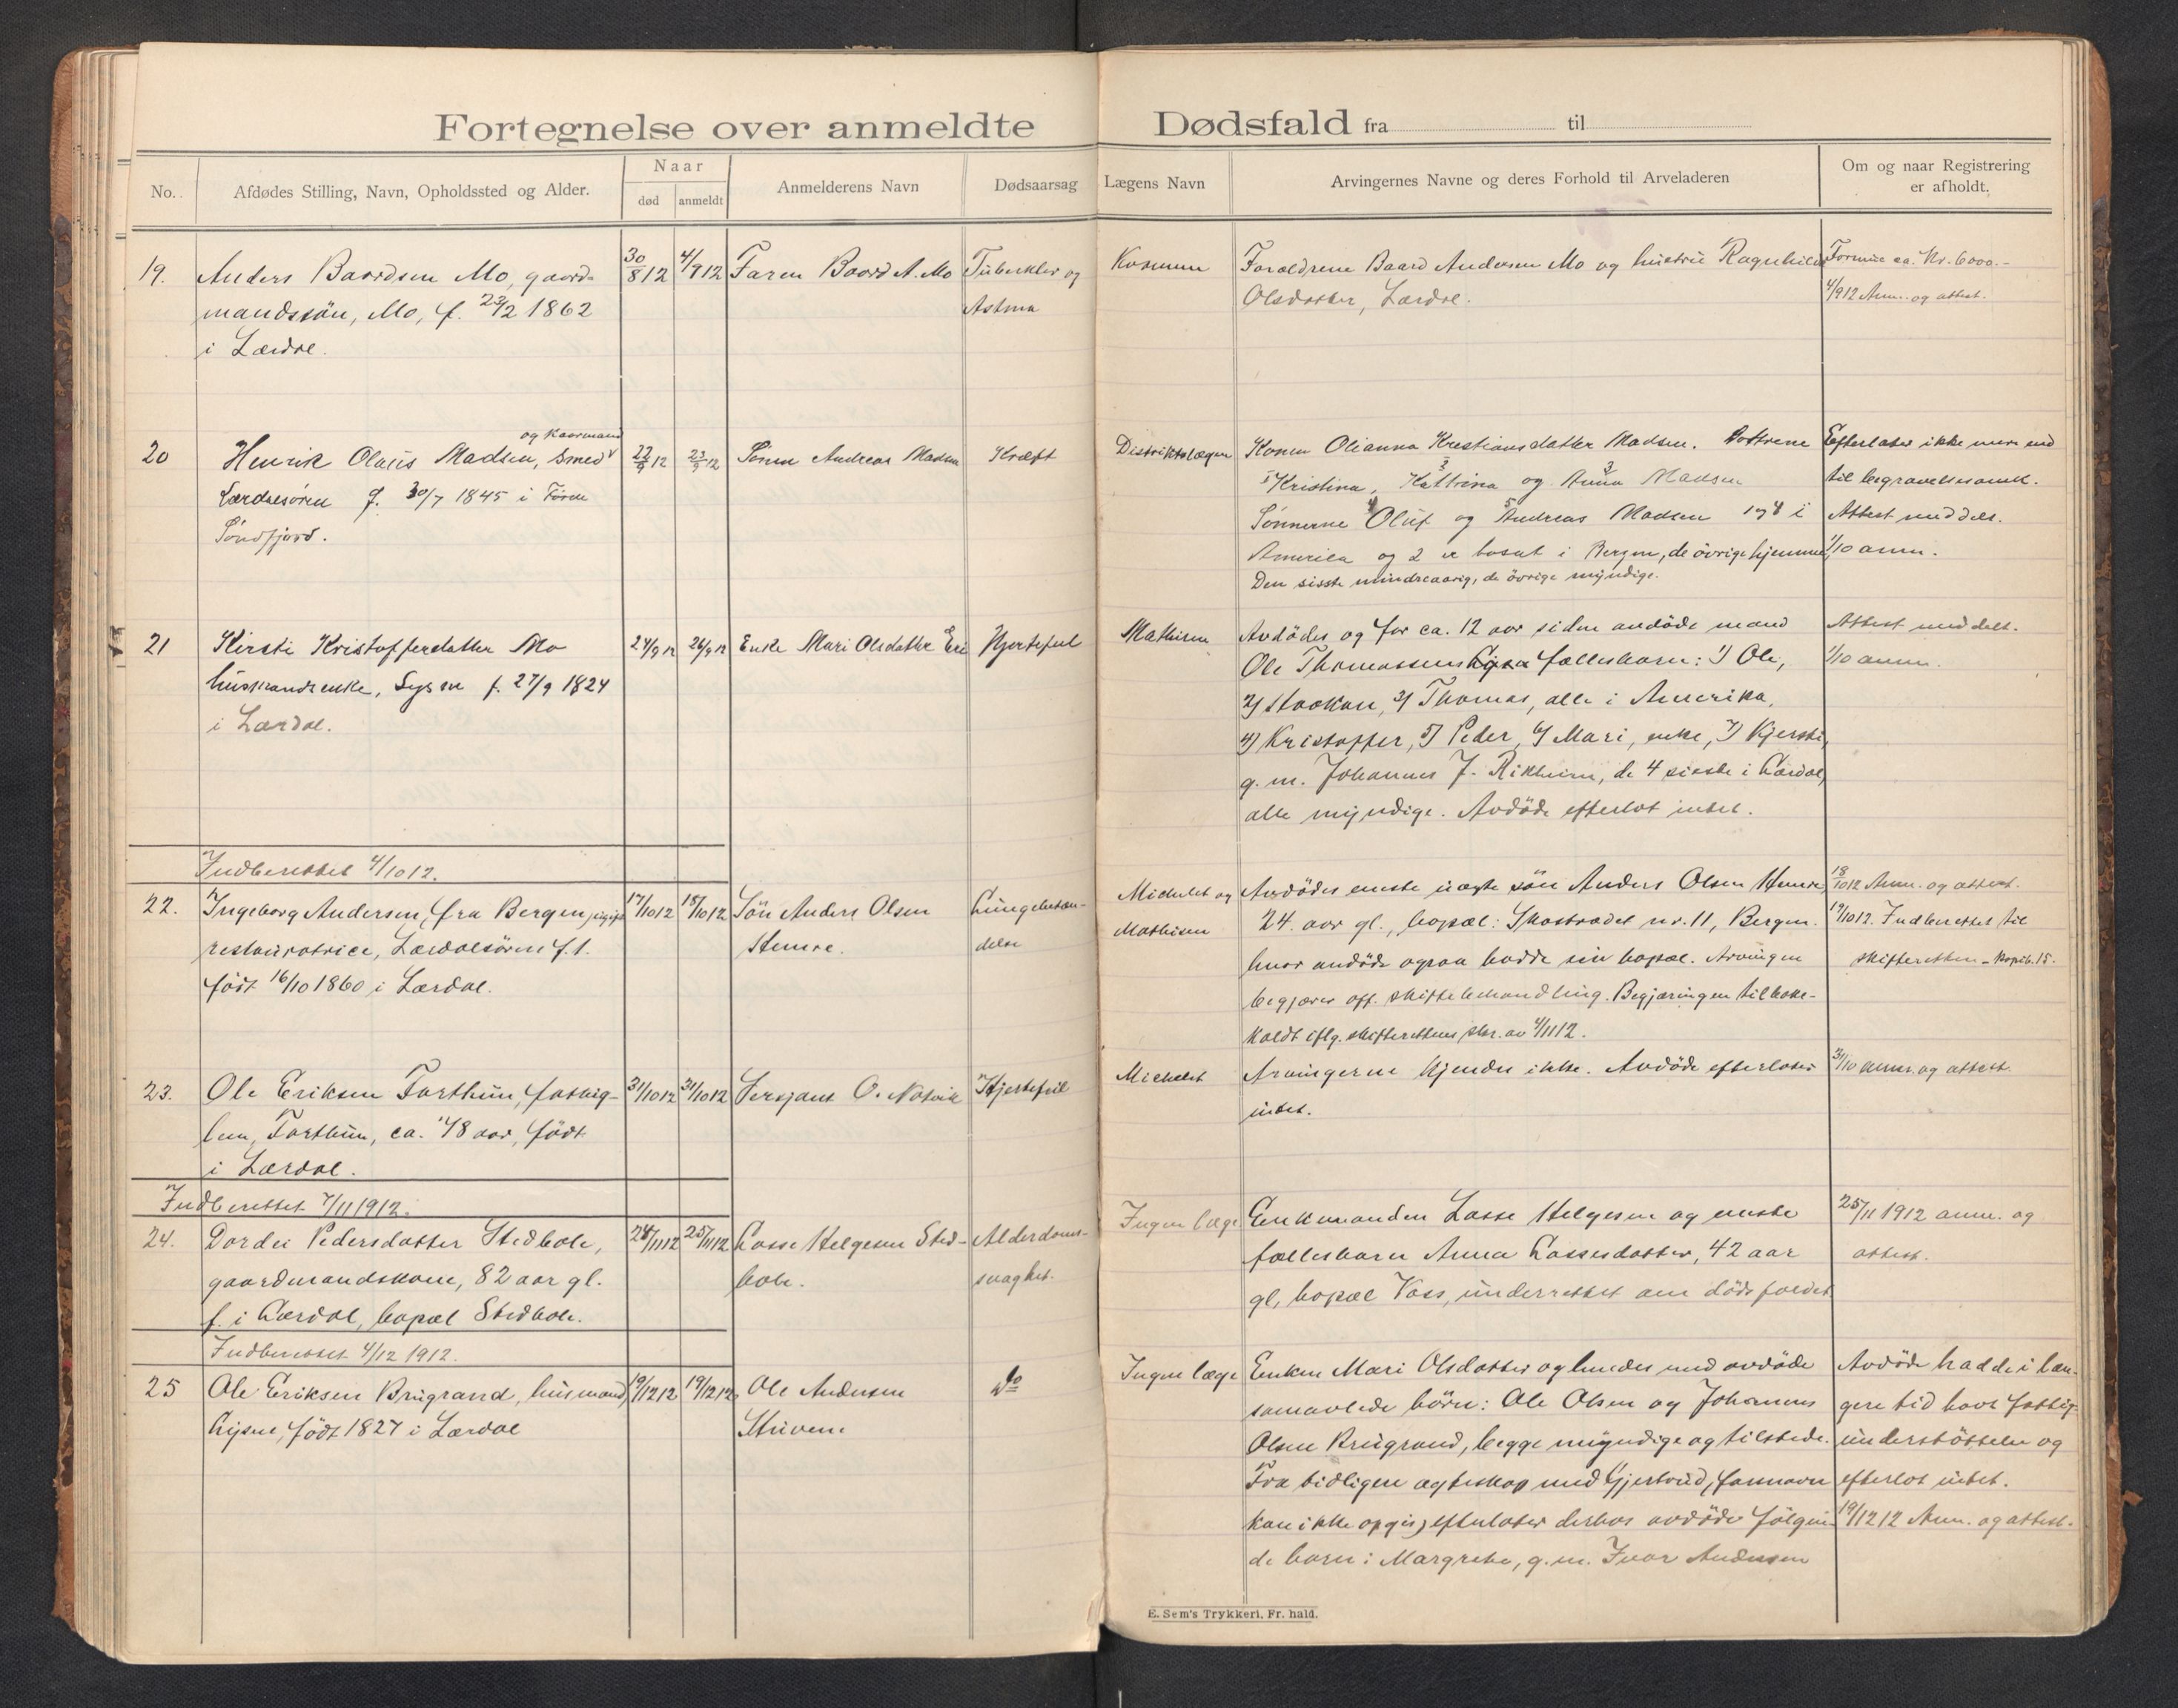 Fortegnelse over anmeldte Dødsfald fra til
No.
Afdødes Stilling, Navn, Opholdssted og Alder.
Naar
død
anmeldt
Anmelderens Navn
Dødsaarsag
Lægens Navn
Arvingernes Navne og deres Forhold til Arveladeren
Om og naar Registrering
er afholdt.
19.
Anders Baardsen Mo, gaard-
mandssön, Mo, f. 23/2 1862
i Lærdal.
30/8 12
4/9 12
Faren Baard A. Mo
Tuberkler og
Astma
Foræeldrene Baard Andersen Mo og hustru Ragnhild
Olsdatter, Lærdal.
Formue ca. Kr. 6000.-
4/9 12 Anm. og attest.
20
og Kaarmand
Henrik Olaus Madsen, smed
Lærdalsøren f. 30/7 1845 i Förde
Söndfjord.
22/9 12
23/9 12
Sönn Andreas Madsen
Kræft
Distriktslægen
Konen Olianna Kristiansdatter Madsen. Döttrene
1 Kristina, 2 Kattrina og 3 Anna Madsen
Sönnerne 4 Oluf og 5 Andreas Madsen 1 og 4 i
America og 2 er bosat i Bergen, de övrige hjemme,
Den sisste mindreaarig, de övrige myndige.
Efterlater ikke mere end
til begravelsesomk.
Attest meddelt.
1/10 anm.
21
Kirsti Kristofferdatter Mo
husmandsenke, f. 27/9 1824
i Lærdal.
24/9 12
26/9 12
Enke Mari Olsdatter Eri
Hjertefeil
Mathisen
Avdödes og for ca. 12 aar siden avdöde mand
Ole Thomassens fællesbarn: 1) Ole,
2) Haakon, 3) Thomas, alle i Amerika,
4) Kristoffer, 5) Peder, 6) Mari, enke, 7) Kjersti,
g. m. Johannes J. Rikheim, de 4 sisste i Lærdal,
alle myndige. Avdöde efterlot intet.
Attest meddelt.
1/10 anm.
Indberettet 4/10 12.
22.
Ingeborg Andersen, fra Bergen, ugift
restauratrice, Lærdalsören f. t.
födt 16/10 1860 i Lærdal.
17/10 12
18/10 12
Sön Anders Olsen
Hemre.
Lungebetæn-
delse
Michelet og
Mathisen
Avdödes eneste uægte sön Anders Olsen Hemre,
24. aar gl., bopæl: Skostrædet nr. 11, Bergen.
hvor avdöde ogsaa hadde sin bopæl. Arvingen
begjærer off. skiftebehandling. Begjæringen tilbake-
kaldt iflg. skifterettens skr. av 4/11 12.
18/10 12 Anm. og attest.
19/10 12. Indberettet til
skifteretten - Kopib. 15.
23.
Ole Eriksen Forthun, fattig-
lem, Forthun, ca. 48 aar, födt
i Lærdal.
31/10 12
31/10 12
Sersjant O. Natvik
Hjertefeil
Michelet
Arvingerne kjendes ikke. Avdöde efterlater
intet.
31/10 anm. og attest.
Indberettet 7/11 1912.
24.
Dordei Pedersdatter Stedbole,
gaardmandskone, 82 aar gl.
f. i Lærdal, bopæl Stedbole.
24/11 12
25/11 12
Lasse Helgesen Sted-
bole.
Alderdoms-
svaghet.
Ingen læge
Enkemanden Lasse Helgesen og eneste
fællesbarn Anna Lassesdatter, 42 aar
gl, bopæl Voss, underrettet om dödsfaldet
25/11 1912 anm. og
attest.
Indberettet 4/12 1912.
25
Ole Eriksen Brugrand, husmand,
Lysne, födt 1827 i Lærdal
19/12 12
19/12 12
Ole Andersen
do
Ingen læge
Enken Mari Olsdatter og hendes med avdöde
samavlede börn: Ole Olsen og Johannes
Olsen Brugrand, begge myndige og tilstede.
Fra tidligere ægteskap med Gjertrud, (farnavn
kan ikke opgis) efterlater derhos avdöde fölgen-
de barn: Margrethe, g. m. Ivar Andersen
Avdöde hadde i læn-
gere tid havt fattig-
understöttelse og
efterlot intet.
19/12 12 Anm. og attest.
E. Sem's Trykkeri, Fr. hald.